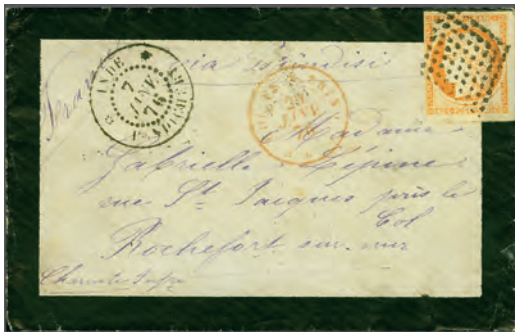 via Brindisi
INDE
PONDICHERY
7
JANV
76
Madame
Gabrielle Lépine
rue St. Jacques près le
Col
Rochefort sur mer
Charente Infre